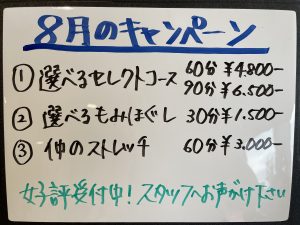 8月のキャンペーン
① 選べるセレクトコース 60分 ¥4.800-
90分 ¥6.500-
② 選べるもみほぐし 30分 ¥1.500-
③ 伸のストレッチ 60分 ¥3.000-
女子評受付中！スタッフへお声がけ下さい